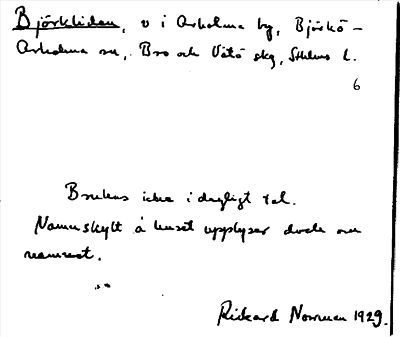 Björkliden, v i Arholma by, Björkö-
Arholma sn, Bro och Vätö skg, Sthlms l.
6
Brukas icke i dagligt tal.
Namnskylt å huset upplyser dock om
namnet.
Rickard Norrman 1929.